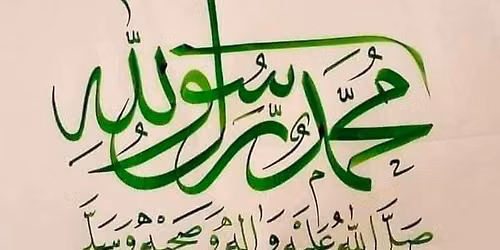 محمد رسول الله
صلى الله عليه وآله وصحبه وسلم